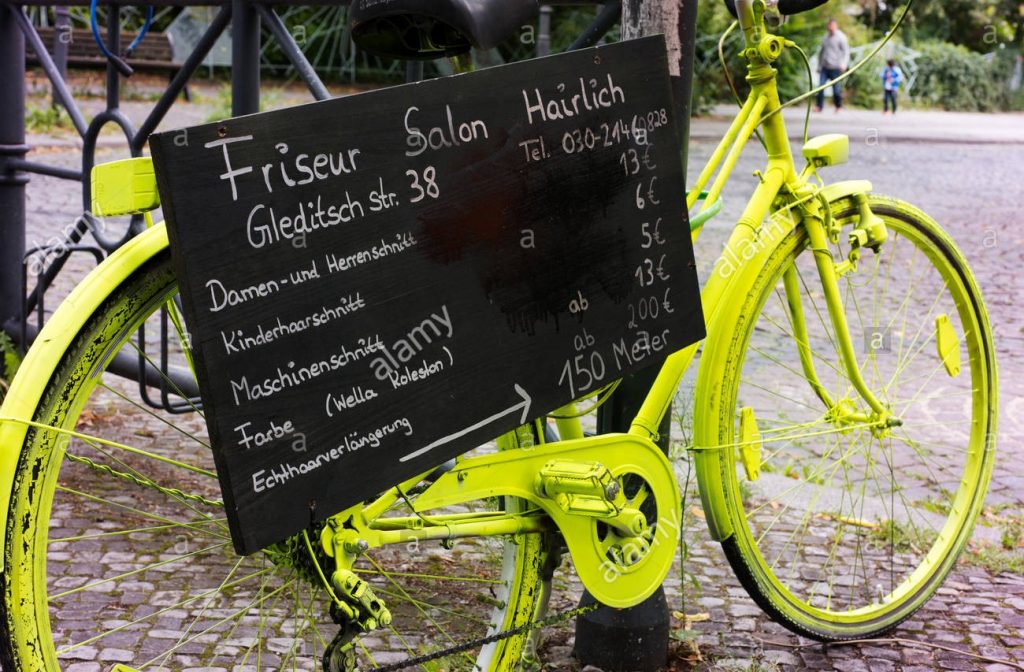 Friseur Salon Hairlich
Gleditsch str. 38 Tel. 030-21460828
Damen-und Herrenschnitt 13€
Kinderhaarschnitt 6€
Maschinenschnitt 5€
Farbe (Wella Koleston) ab 13€
Echthaarverlängerung ab 200€
150 Meter
alamy
alamy
alamy
alamy